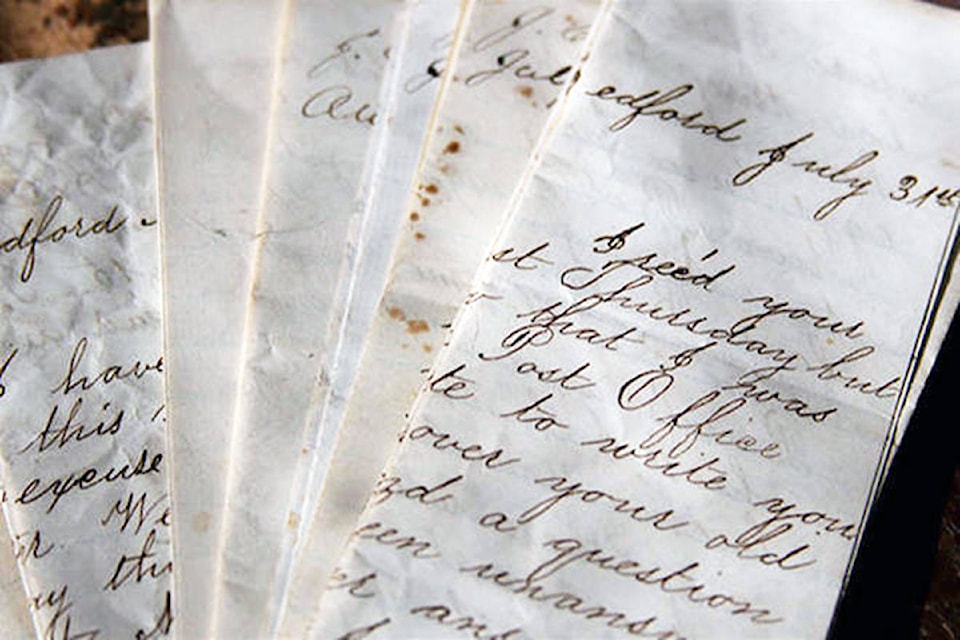 dford
I have
this
excuse
We
July
edford July 31st
I rec'd your
st Thursday but
that I was
Post Office
te to write you
over your old
nd a question
een unans
er ans